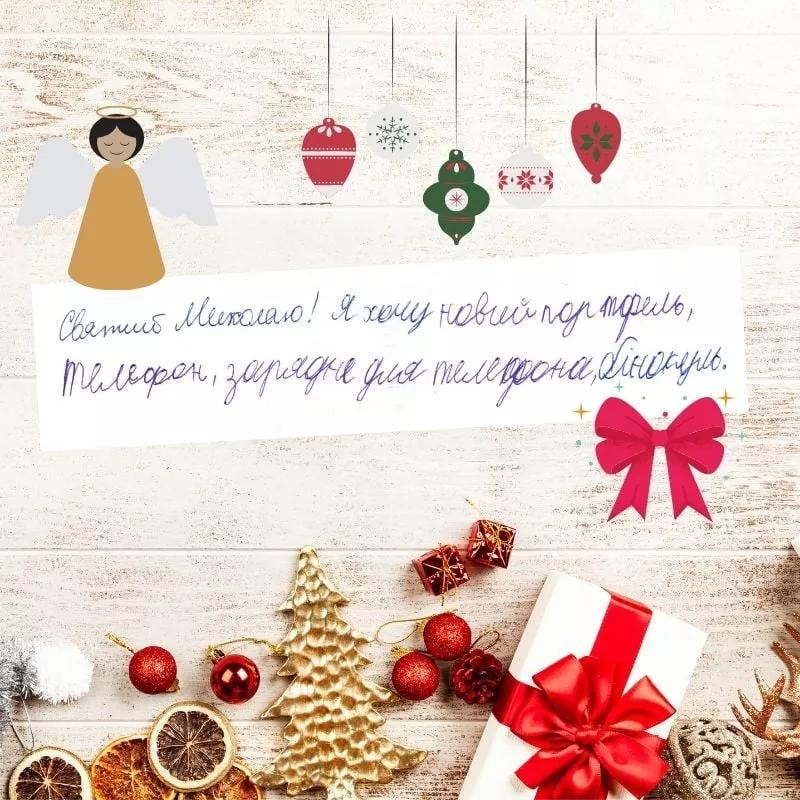 Святий Миколаю! Я хочу новий портфель,
телефон, зарядне для телефона, бінокуль.